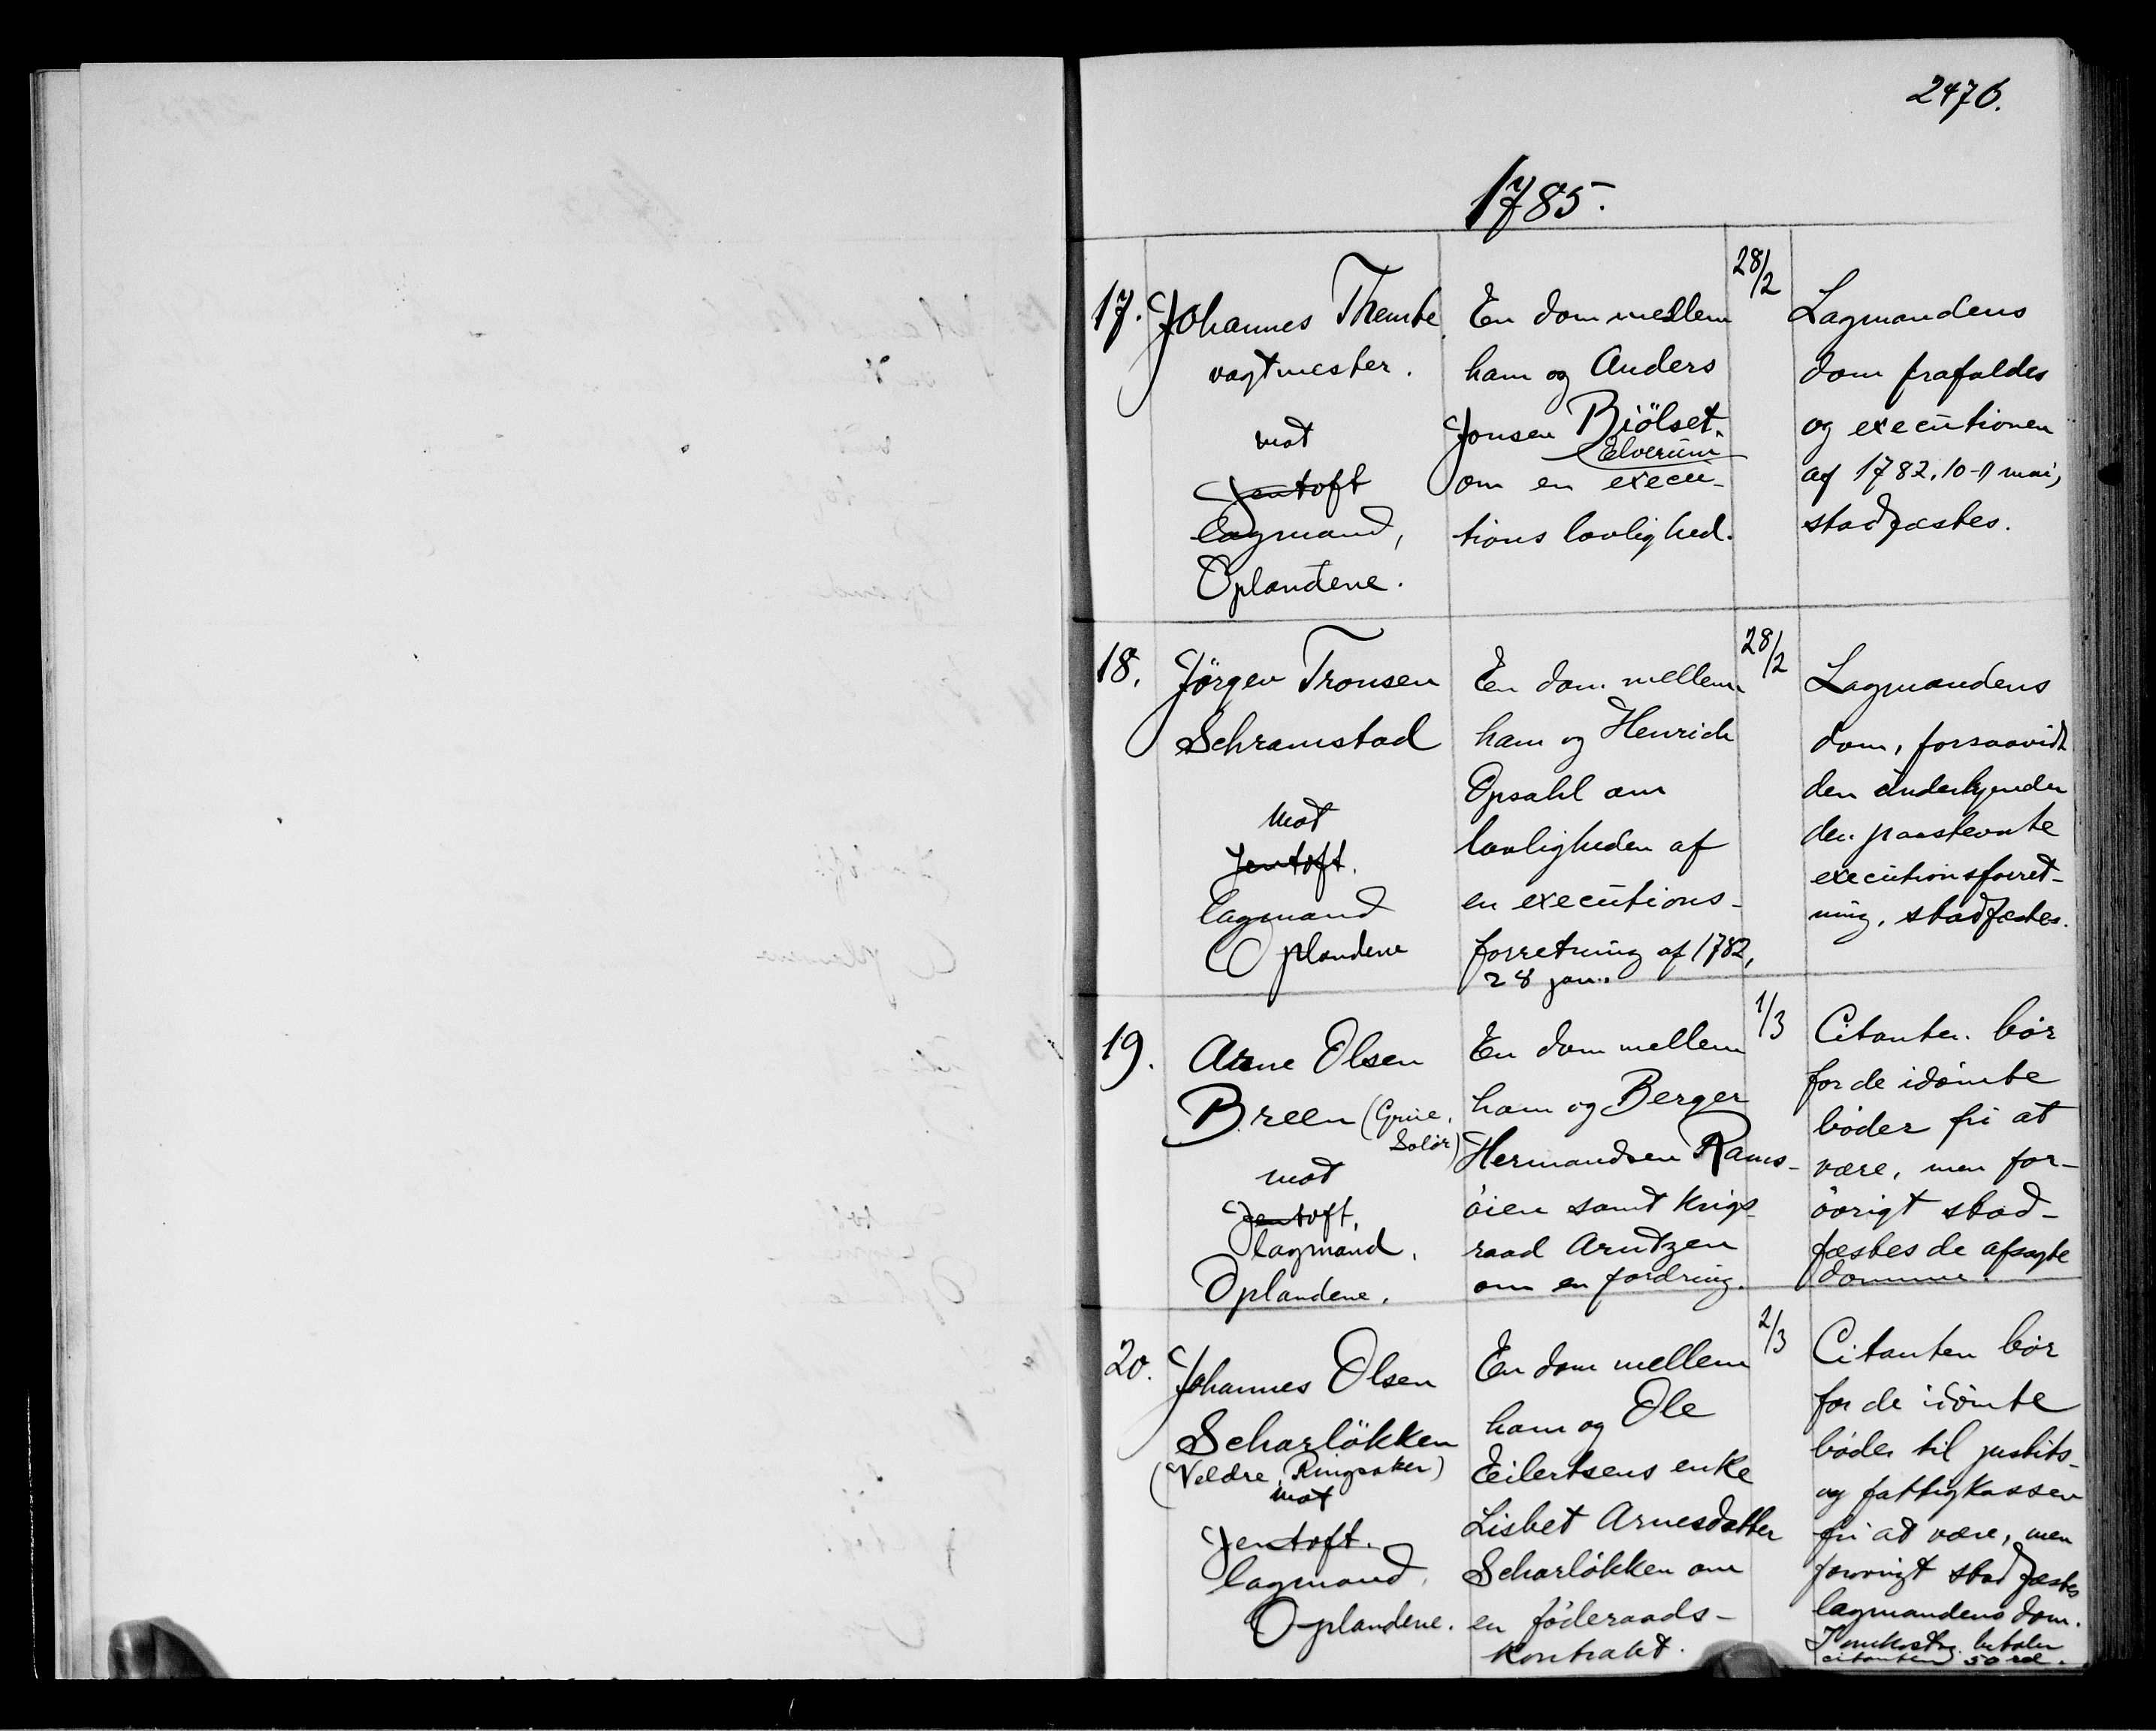 2476.
1785.
17. Johannes Thembe
vagtmester.
mot
Jentoft
lagmand,
Oplandene.
En dom mellem
ham og Anders
Jonsen Biölset.
Elverum
om en execu-
tions lovlighed.
28/2
Lagmandens
dom frafaldes
og executionen
af 1782, 10-11 mai,
stadfæstes.
18. Jörgen Tronsen
Schramstad
mot
Jentoft.
lagmand
Oplandene
En dom mellem
ham og Henrich
Opsahl om
lovligheden af
en executions-
forretning af 1782,
28 jan.
28/2
Lagmandens
dom, forsaavidt
den underkjender
den paastevnte
executionsforret-
ning, stadfæstes.
19. Arne Olsen
Breen (Grue,
Solör)
mot
Jentoft,
lagmand,
Oplandene.
En dom mellem
ham og Berger
Hermandsen Rams-
öien samt krigs-
raad Arntzen
om en fordring.
1/3
Citanten bör
for de idömte
böder fri at
være, men for-
övrigt stad-
fæstes de afsagte
domme.
20. Johannes Olsen
Scharlökken
(Veldre, Ringsaker)
mot
Jentoft.
lagmand,
Oplandene.
En dom mellem
ham og Ole
Eilertsens enke
Lisbet Arnesdatter
Scharlökken om
en föderaads-
kontrakt.
2/3
Citanten bör
for de idömte
böder til justits-
og fattigkassen
fri at være, men
forövrigt stadfæstes
lagmandens dom.
I omkostn. betaler
citanten 50 rd.